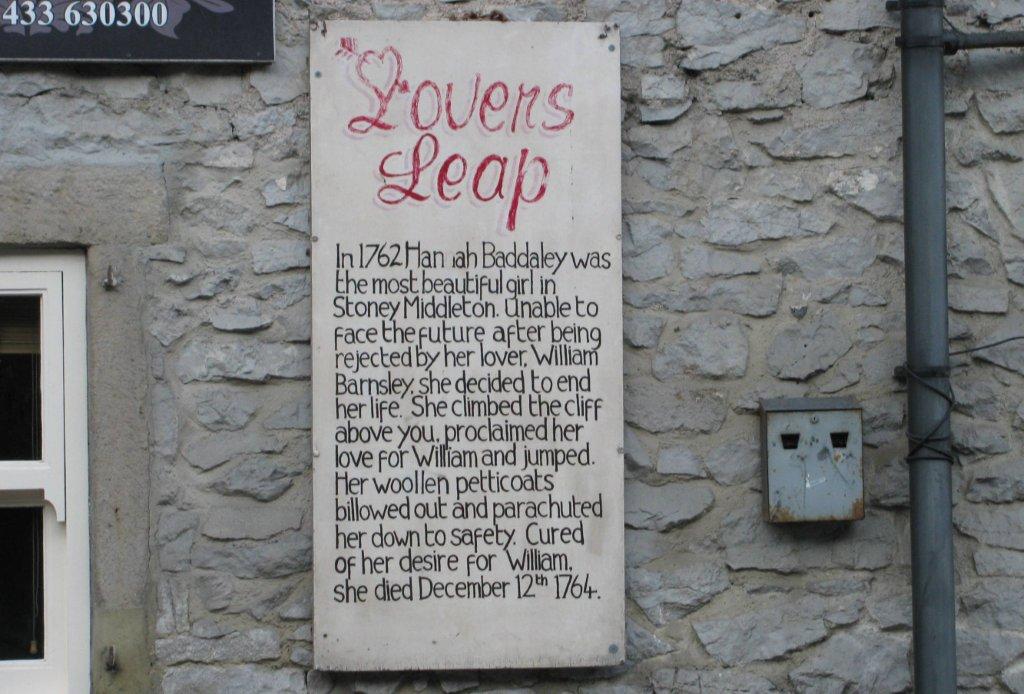 433 630300
Lovers
Leap
In 1762 Han ah Baddaley was
the most beautiful girl in
Stoney Middleton. Unable to
face the future after being
rejected by her lover, William
Barnsley, she decided to end
her life. She climbed the cliff
above you, proclaimed her
love for William and jumped.
Her woollen petticoats
billowed out and parachuted
her down to safety. Cured
of her desire for William,
she died December 12th 1764.